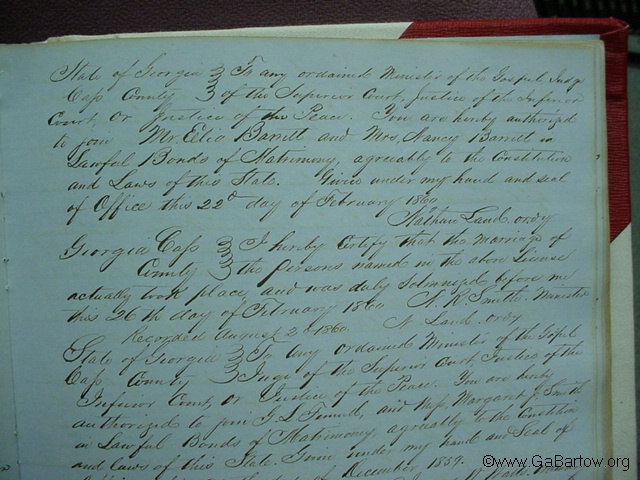 State of Georgia } To any ordained Minister of the Gospel, Judge
Cass County } of the Superior Court, Justice of the Inferior
Court, or Justice of the Peace. You are hereby authorized
to join Mr. Barrett and Mrs. Nancy Barrett in
Lawful Bonds of Matrimony, agreeably to the Constitution
and Laws of this State. Given under my hand and seal
of Office this 22d day of February 1860
Nathan Land ordy
Georgia Cass } I hereby Certify that the marriage of
County } the persons named in the above License
actually took place, and was duly Solemnized before me
this 26th day of February 1860. Smith. Minister
Recorded August 2d 1860. N. Land. ordy
State of Georgia } To Any Ordained Minister of the
Cass County } of the Superior Court Justice of the
Inferior Court, or Justice of the Peace. You are hereby
authorized to join and Margaret J. Smith
in Lawful Bonds of Matrimony, agreeably to the Constitution
and laws of this State. Given under my hand and Seal of
December 1859.
©www.GaBartow.org